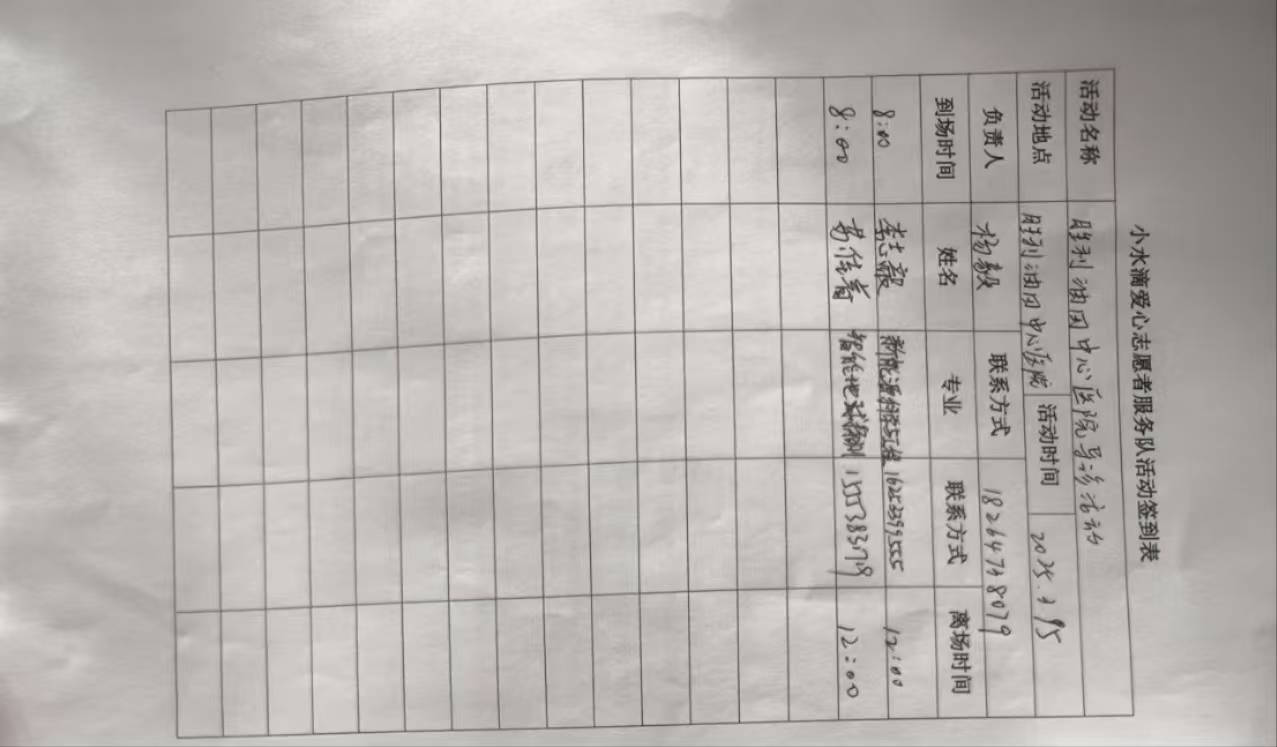 小水滴爱心志愿者服务队活动签到表
活动名称 胜利油田中心医院导诊活动
活动地点 胜利油田中心医院 活动时间
负责人 杨毅 联系方式
到场时间 姓名 专业 联系方式 离场时间
8:00 李志毅 16252399555 12:00
8:00 智能地球探测 12:00